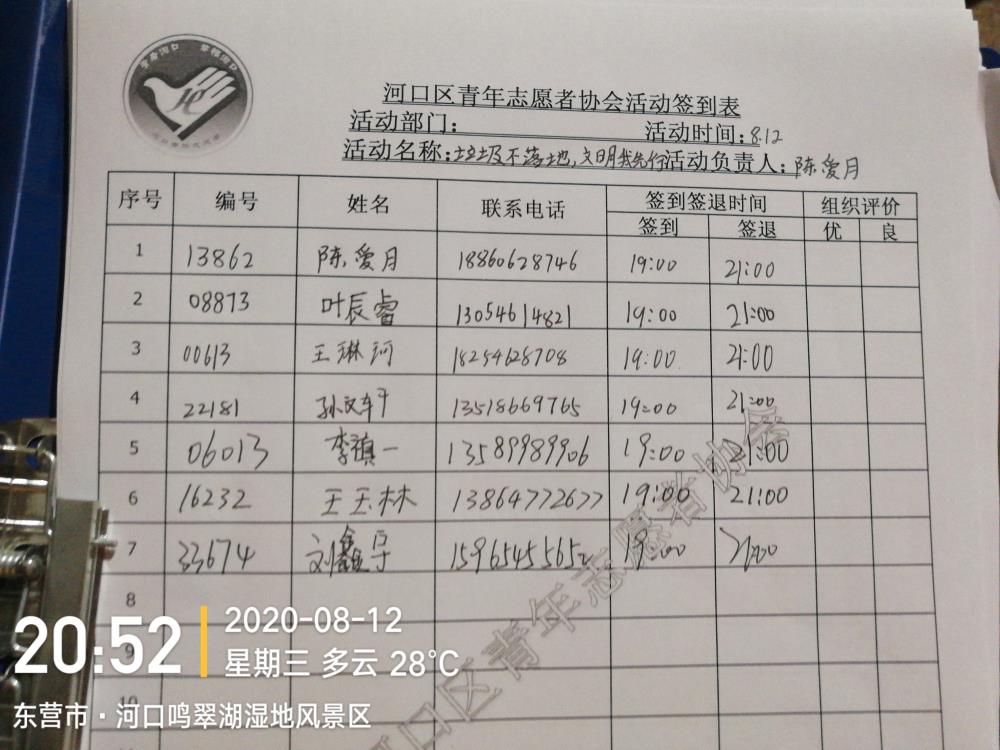 河口区青年志愿者协会活动签到表
活动部门：
活动时间：8.12
活动名称：垃圾不落地，文明我先行
活动负责人：陈爱月
序号 编号 姓名 联系电话 签到签退时间 组织评价
签到 签退 优 良
1 13862 陈爱月 18860628746 19:00 21:00
2 08873 叶辰睿 13054614821 19:00 21:00
3 00613 王琳河 18254628708 19:00 21:00
4 22181 孙文轩 13518669765 19:00 21:00
5 06013 李禛一 13589989906 19:00 21:00
6 16232 王玉林 13864772677 19:00 21:00
7 33674 刘鑫 15965455652 19:00 21:00
8
9
10
河口区青年志愿者协会
20:52
2020-08-12
星期三 多云 28℃
东营市·河口鸣翠湖湿地风景区